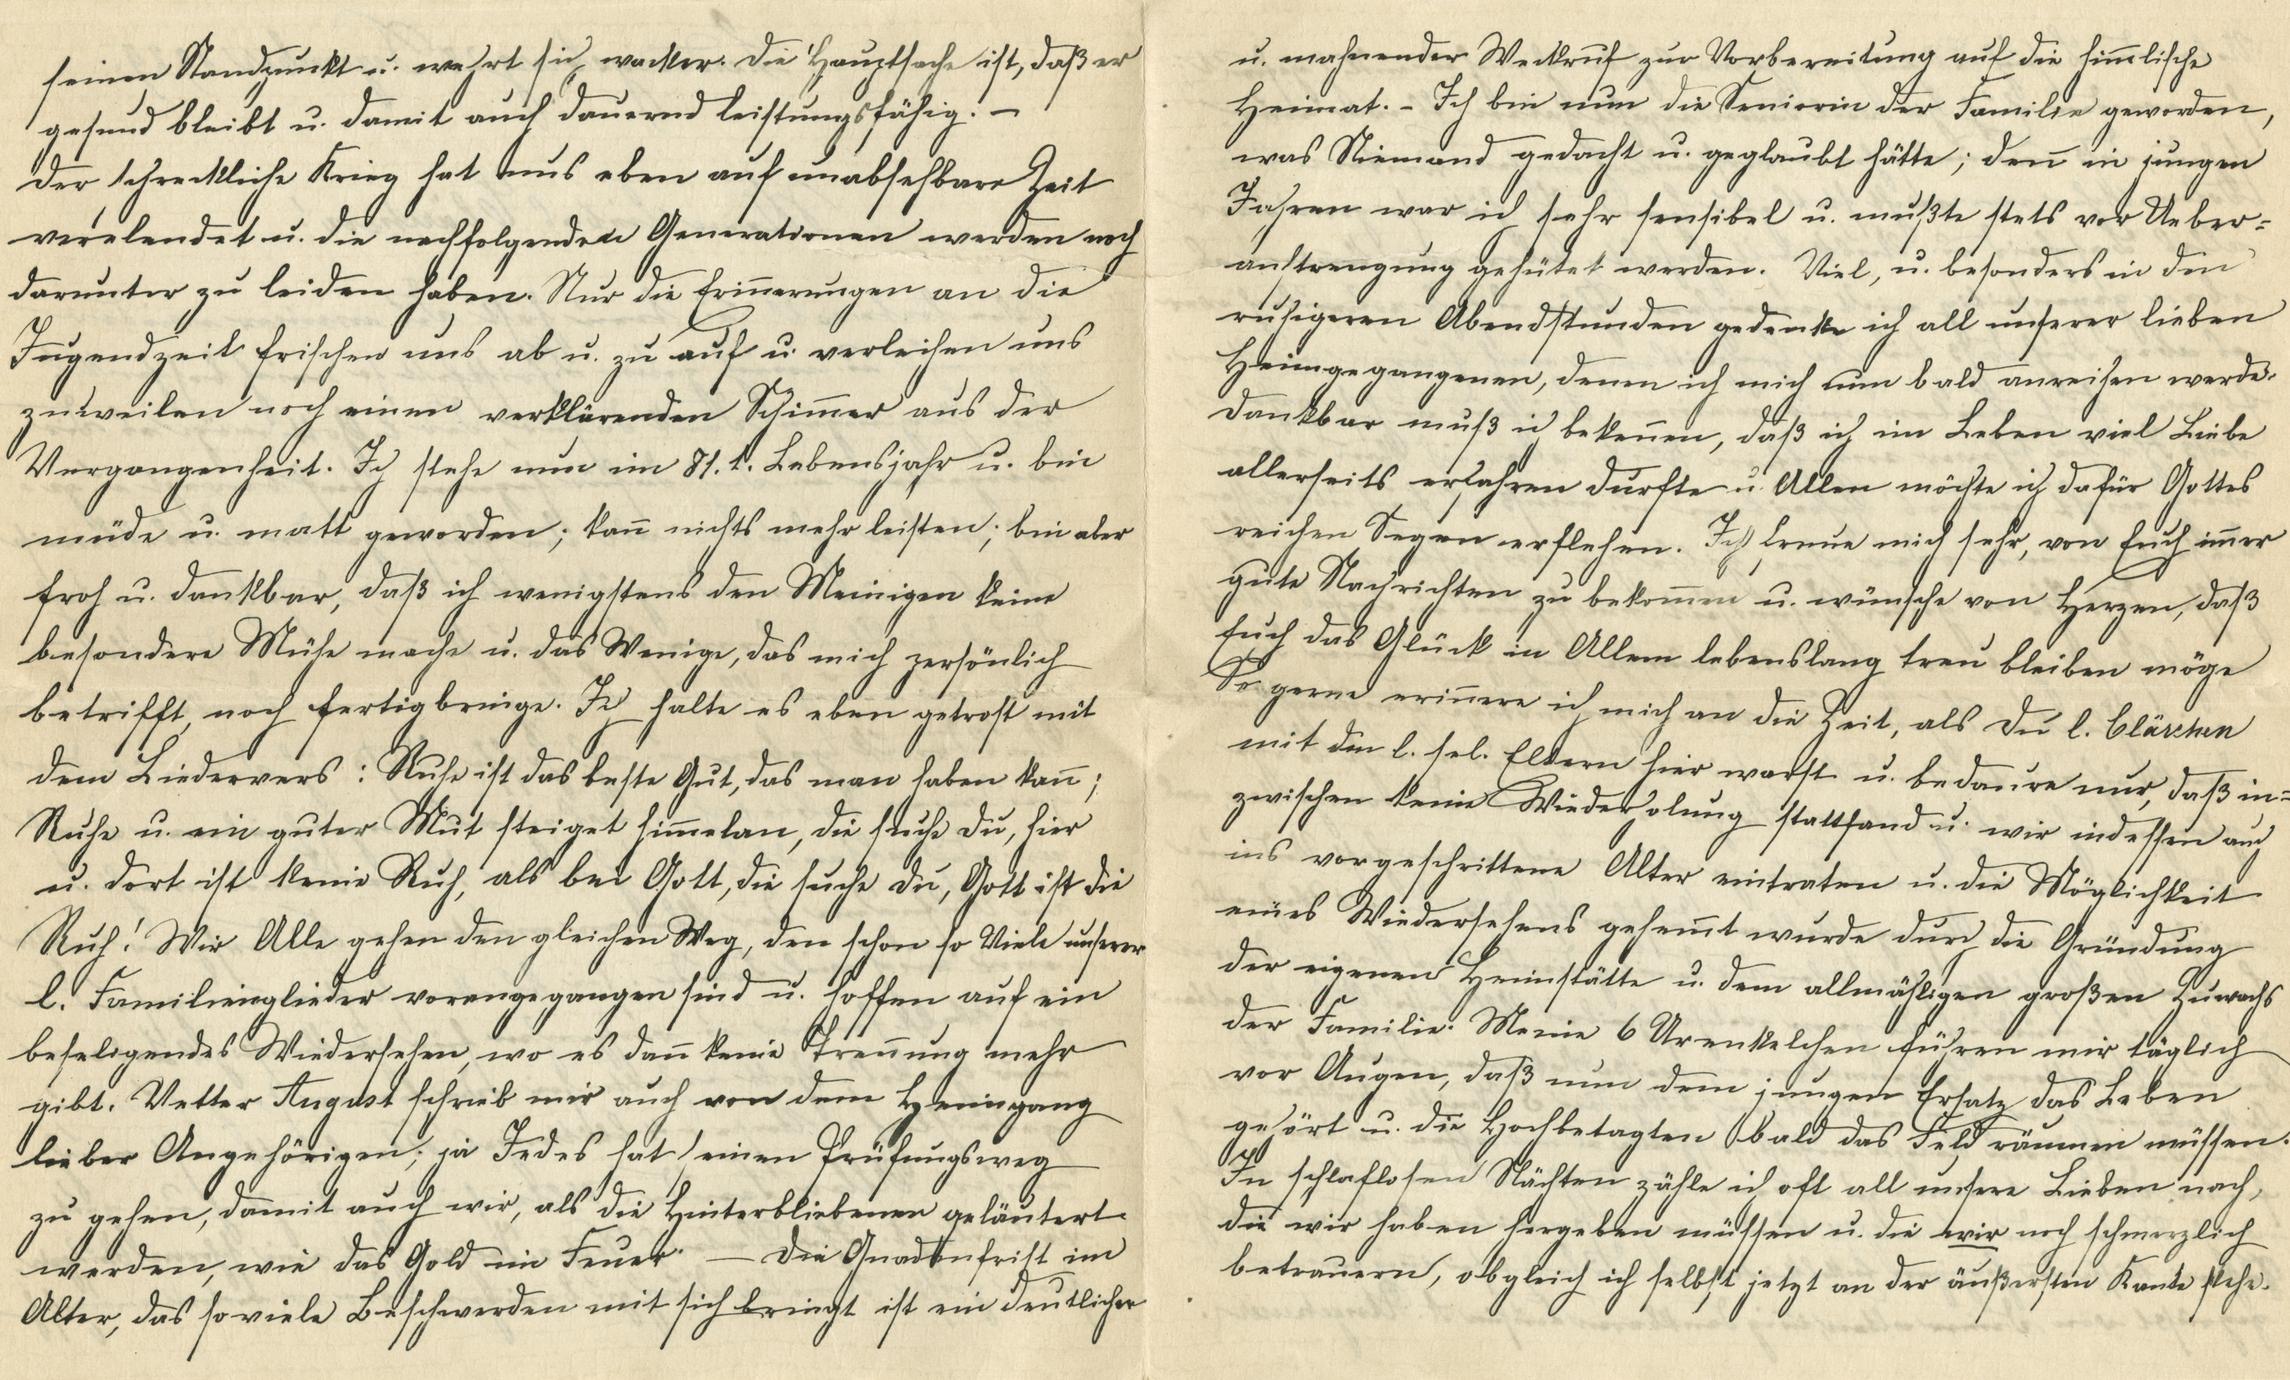 seinen Standpunkt u. wehrt sich wacker. Die Hauptsache ist, daß er
gesund bleibt u. damit auch dauernd leistungsfähig. –
Der schreckliche Krieg hat uns eben auf unabsehbare Zeit
verelendet u. die nachfolgenden Generationen werden noch
darunter zu leiden haben. Nur die Erin̄erungen an die
Jugendzeit frischen uns ab u. zu auf u. verleihen uns
zuweilen noch einen verklärenden Schim̄er aus der
Vergangenheit. Ich stehe nun im 81.t. Lebensjahr u. bin
müde u. matt geworden; kan̄ nichts mehr leisten; bin aber
froh u. dankbar, daß ich wenigstens den Meinigen keine
besondere Mühe mache u. das Wenige, das mich persönlich
betrifft, noch fertigbringe. Ich halte es eben getrost mit
dem Liedervers: Ruhe ist das beste Gut, das man haben kan̄;
Ruhe u. ein guter Mut steiget him̄elan, die suche Du, hier
u. dort ist keine Ruh, als bei Gott, die suche Du, Gott ist die
Ruh! Wir Alle gehen den gleichen Weg, den schon so Viele unserer
l. Familienglieder vorangegangen sind u. hoffen auf ein
beseligendes Wiedersehen, wo es dan̄ keine Tren̄ung mehr
gibt. Vetter August schrieb mir auch von dem Heimgang
lieber Angehörigen; ja Jedes hat seinen Prüfungsweg
zu gehen, damit auch wir, als die Hinterbliebenen geläutert
werden, wie das Gold im Feuer. — Die Gnadenfrist im
Alter, das so viele Beschwerden mit sich bringt ist ein deutlicher
u. mahnender Weckruf zur Vorbereitung auf die him̄lische
Heimat. – Ich bin nun die Seniorin der Familie geworden,
was Niemand gedacht u. geglaubt hätte; den̄ in jungen
Jahren war ich sehr sensibel u. mußte stets vor Ueber=
anstrengung gehütet werden. Viel, u. besonders in den
ruhigeren Abendstunden gedenke ich all unserer lieben
Heimgegangenen, denen ich mich nun bald anreihen werde.
Dankbar muß ich beken̄en, daß ich im Leben viel Liebe
allerseits erfahren durfte u. Allen möchte ich dafür Gottes
reichen Segen erflehen. Ich freue mich sehr, von Euch im̄er
gute Nachrichten zu bekom̄en u. wünsche von Herzen, daß
Euch das Glück in Allem lebenslang treu bleiben möge
So gerne erin̄ere ich mich an die Zeit, als Du l. Clärchen
mit den l. sel. Eltern hier warst u. bedaure nur, daß in=
zwischen keine Wiederholung stattfand u. wir indessen auch
ins vorgeschrittene Alter eintraten u. die Möglichkeit
eines Wiedersehens gehem̄t wurde durch die Gründung
der eigenen Heimstätte u. dem allmähligen großen Zuwachs
der Familie. Meine 6 Urenkelchen führen mir täglich
vor Augen, daß nun dem jungen Ersatz das Leben
gehört u. die Hochbetagten bald das Feld räumen müssen.
In schlaflosen Nächten zähle ich oft all unsere Lieben nach,
die wir haben hergeben müssen u. die wir noch schmerzlich
betrauern, obgleich ich selbst jetzt an der äußersten Kante stehe.